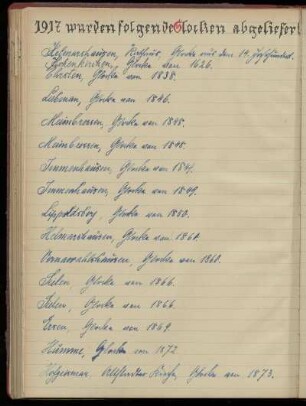 1917 wurden folgende Glocken abgeliefert
Helmarshausen, Rathaus, Glocke aus dem 14. Jahrhundert.
Glocke von 1626.
Ehrsten, Glocke von 1838.
Glocke von 1846.
Mainbressen, Glocke von 1845.
Mainbressen, Glocke von 1845.
Immenhausen, Glocke von 1841.
Immenhausen, Glocke von 1849.
Lippoldsberg, Glocke von 1850.
Helmarshausen, Glocke von 1864.
Glocke von 1860.
Sielen, Glocke von 1866.
Sielen, Glocke von 1866.
Ersen, Glocke von 1869.
Hümme, Glocke von 1872
Hofgeismar, Altstädter Kirche, Glocke von 1873.